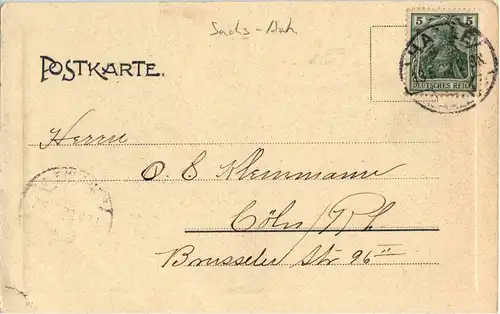 Sachs-Anh
POSTKARTE.
5 5
HALLE
DEUTSCHES REICH
Herrn
O. E. Kleinmann
Cöln/Rh.
Brusseler Str 96 II